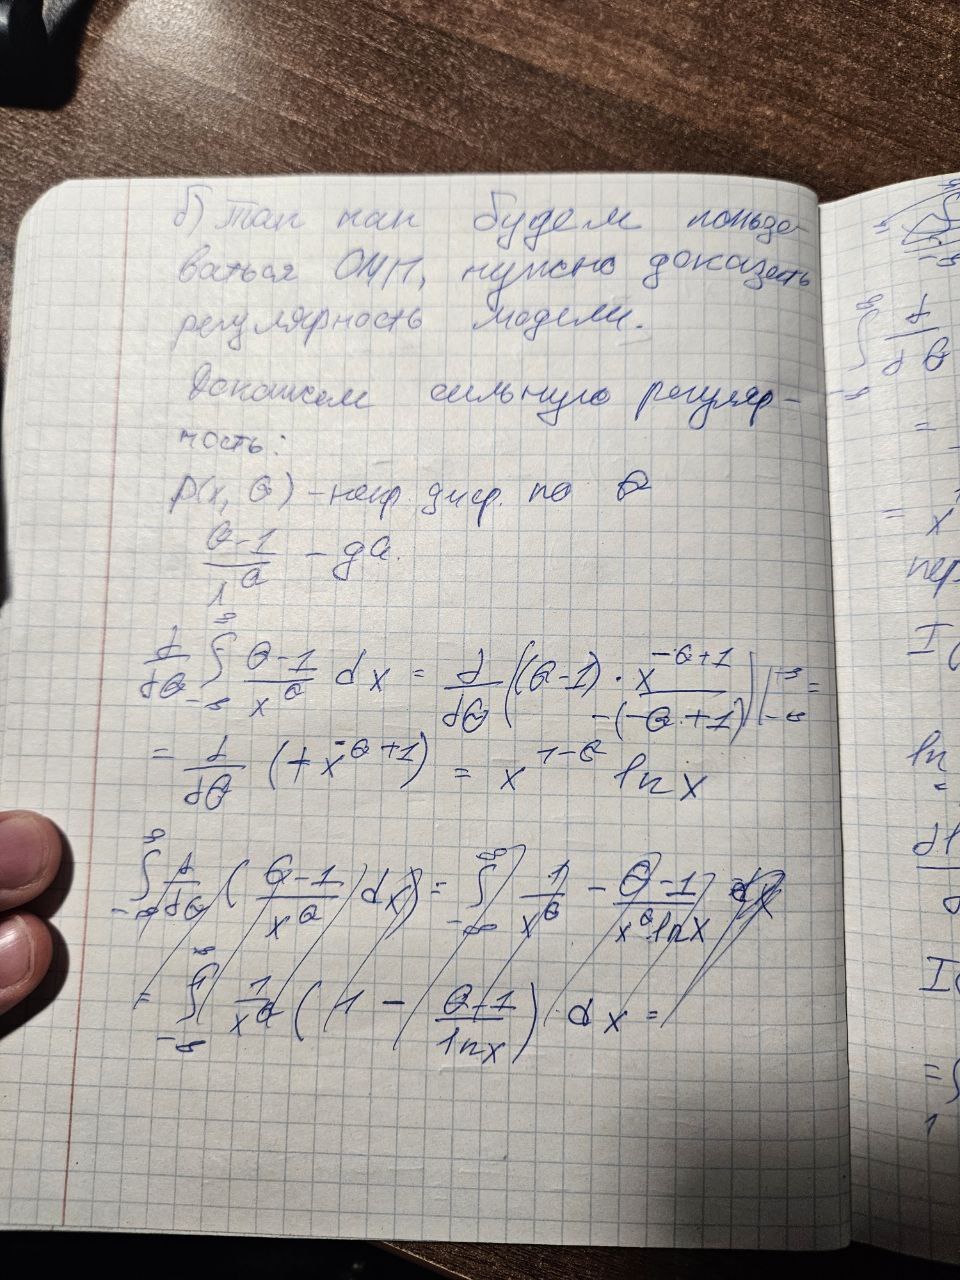 б) Так как будем пользо-
ваться ОМП, нужно доказать
регулярность модели.
Докажем сильную регуляр-
ность:
p(x, θ) - непр. диф. по θ
(θ-1)/x^θ - да.
d/dθ ∫_{-∞}^{∞} (θ-1)/x^θ dx = d/dθ ((θ-1) · x^{-θ+1}/(-(-θ+1)))|_{-∞}^{+∞} =
= d/dθ (+x^{-θ+1}) = x^{1-θ} ln x
∫_{-∞}^{∞} d/dθ ((θ-1)/x^θ dx) = ∫_{-∞}^{∞} 1/x^θ - (θ-1)/(x^θ ln x) dx
= ∫_{-∞}^{∞} 1/x^θ (1 - (θ-1)/(ln x)) · dx =